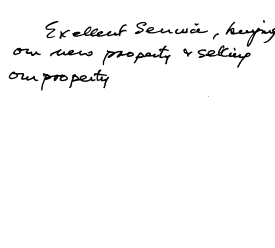 Excellent Service, buying
our new property & selling
our property